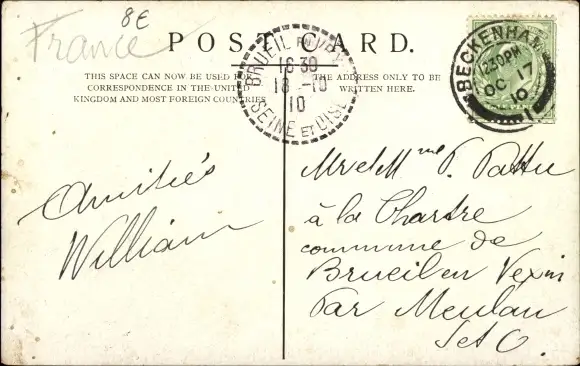 8E
France
POST CARD.
THIS SPACE CAN NOW BE USED FOR
CORRESPONDENCE IN THE UNITED
KINGDOM AND MOST FOREIGN COUNTRIES
THE ADDRESS ONLY TO BE
WRITTEN HERE.
BRUEIL EN VEXIN
16 30
18 -10
10
SEINE ET OISE
BECKENHAM
12 30 PM
OC 17
10
1
Amitiés
William
Mr et Mme P. Pattu
à la Chartre
commune de
Brueil en Vexin
Par Meulan
S et O.